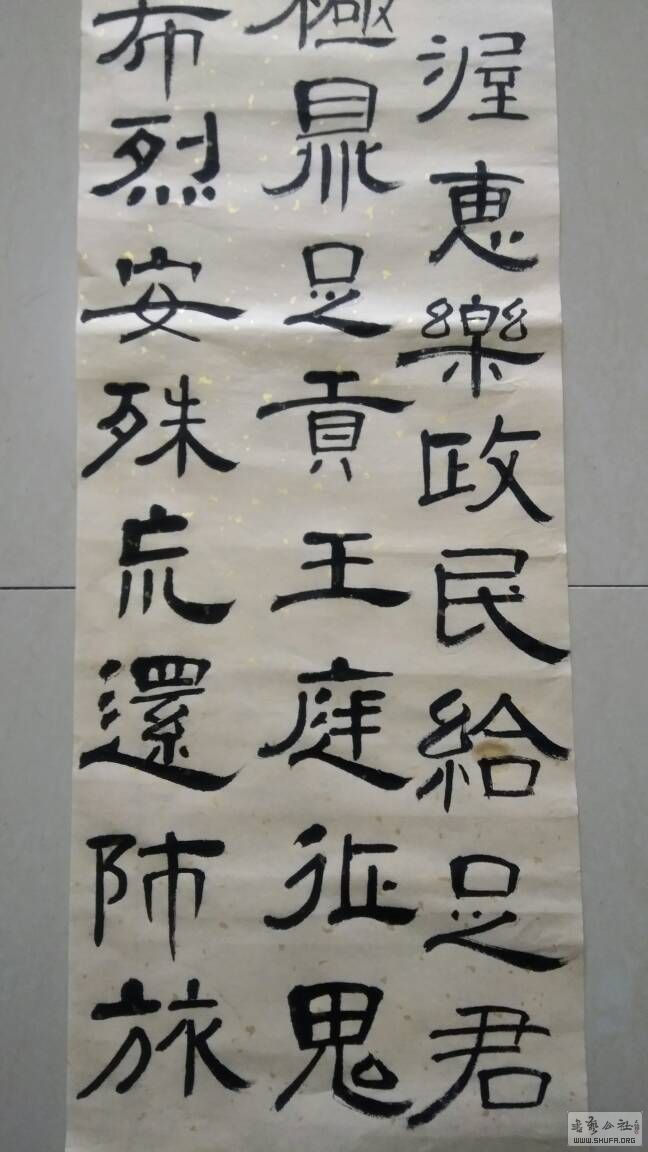 渥惠樂政民給足君
極鼎足貢王庭征鬼
布烈安殊巟還師旅
書藝公社
WWW.SHUFA.ORG